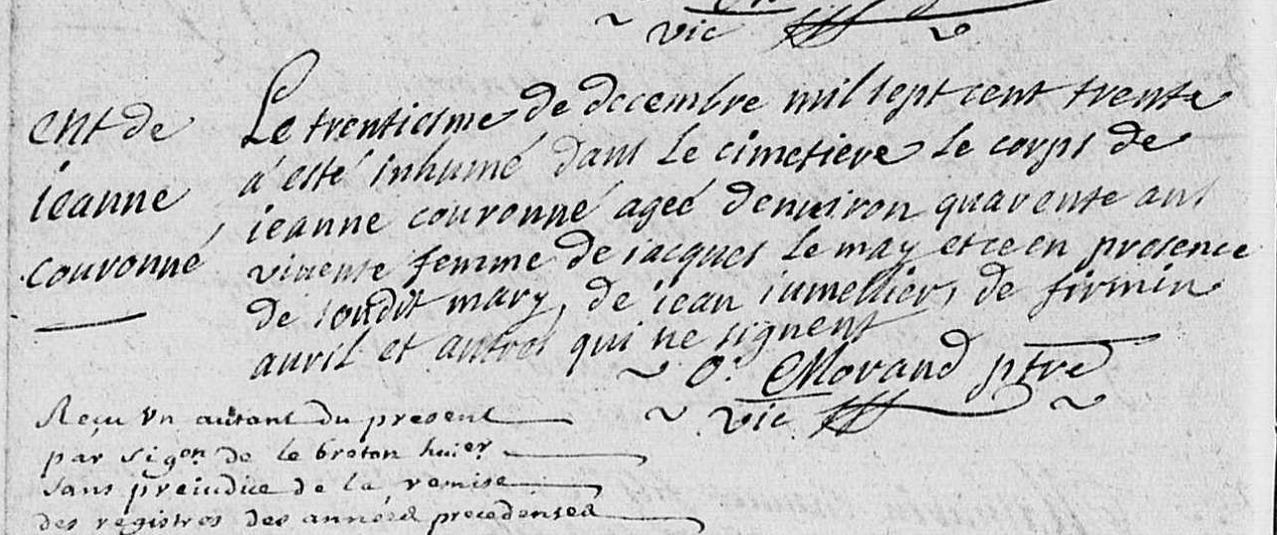 vic
ent de
ieanne
couronné
Le trentiesme de decembre mil sept cent trente
a esté inhumé dans le cimetiere le corps de
ieanne couronné ageé denuiron quarente ans
viuente femme de iacques le may et ce en presence
de sondit mary, de iean iumellier, de firmin
auril et autres qui ne signent
o. Morand ptre
vic
Reçu un autant du present
par sigon de le breton huier
sans preiudice de la remise
des registres des années precedentes